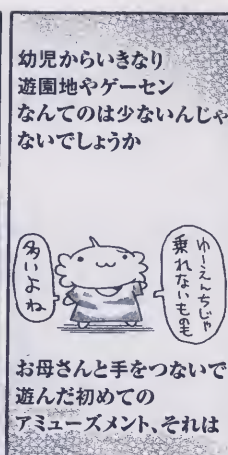 幼児からいきなり
遊園地やゲーセン
なんてのは少ないんじゃ
ないでしょうか
ゆーえんちじゃ
乗れないものも
多いよね
お母さんと手をつないで
遊んだ初めての
アミューズメント、それは